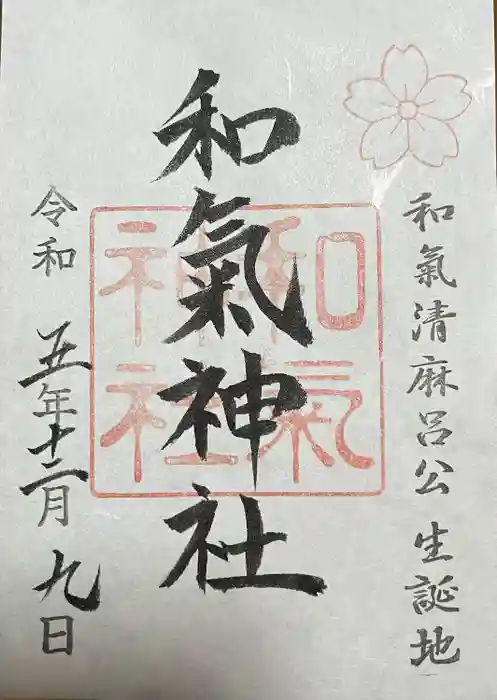 和氣清麻呂公 生誕地
和氣神社
和氣
神社
令和 五年十二月 九日